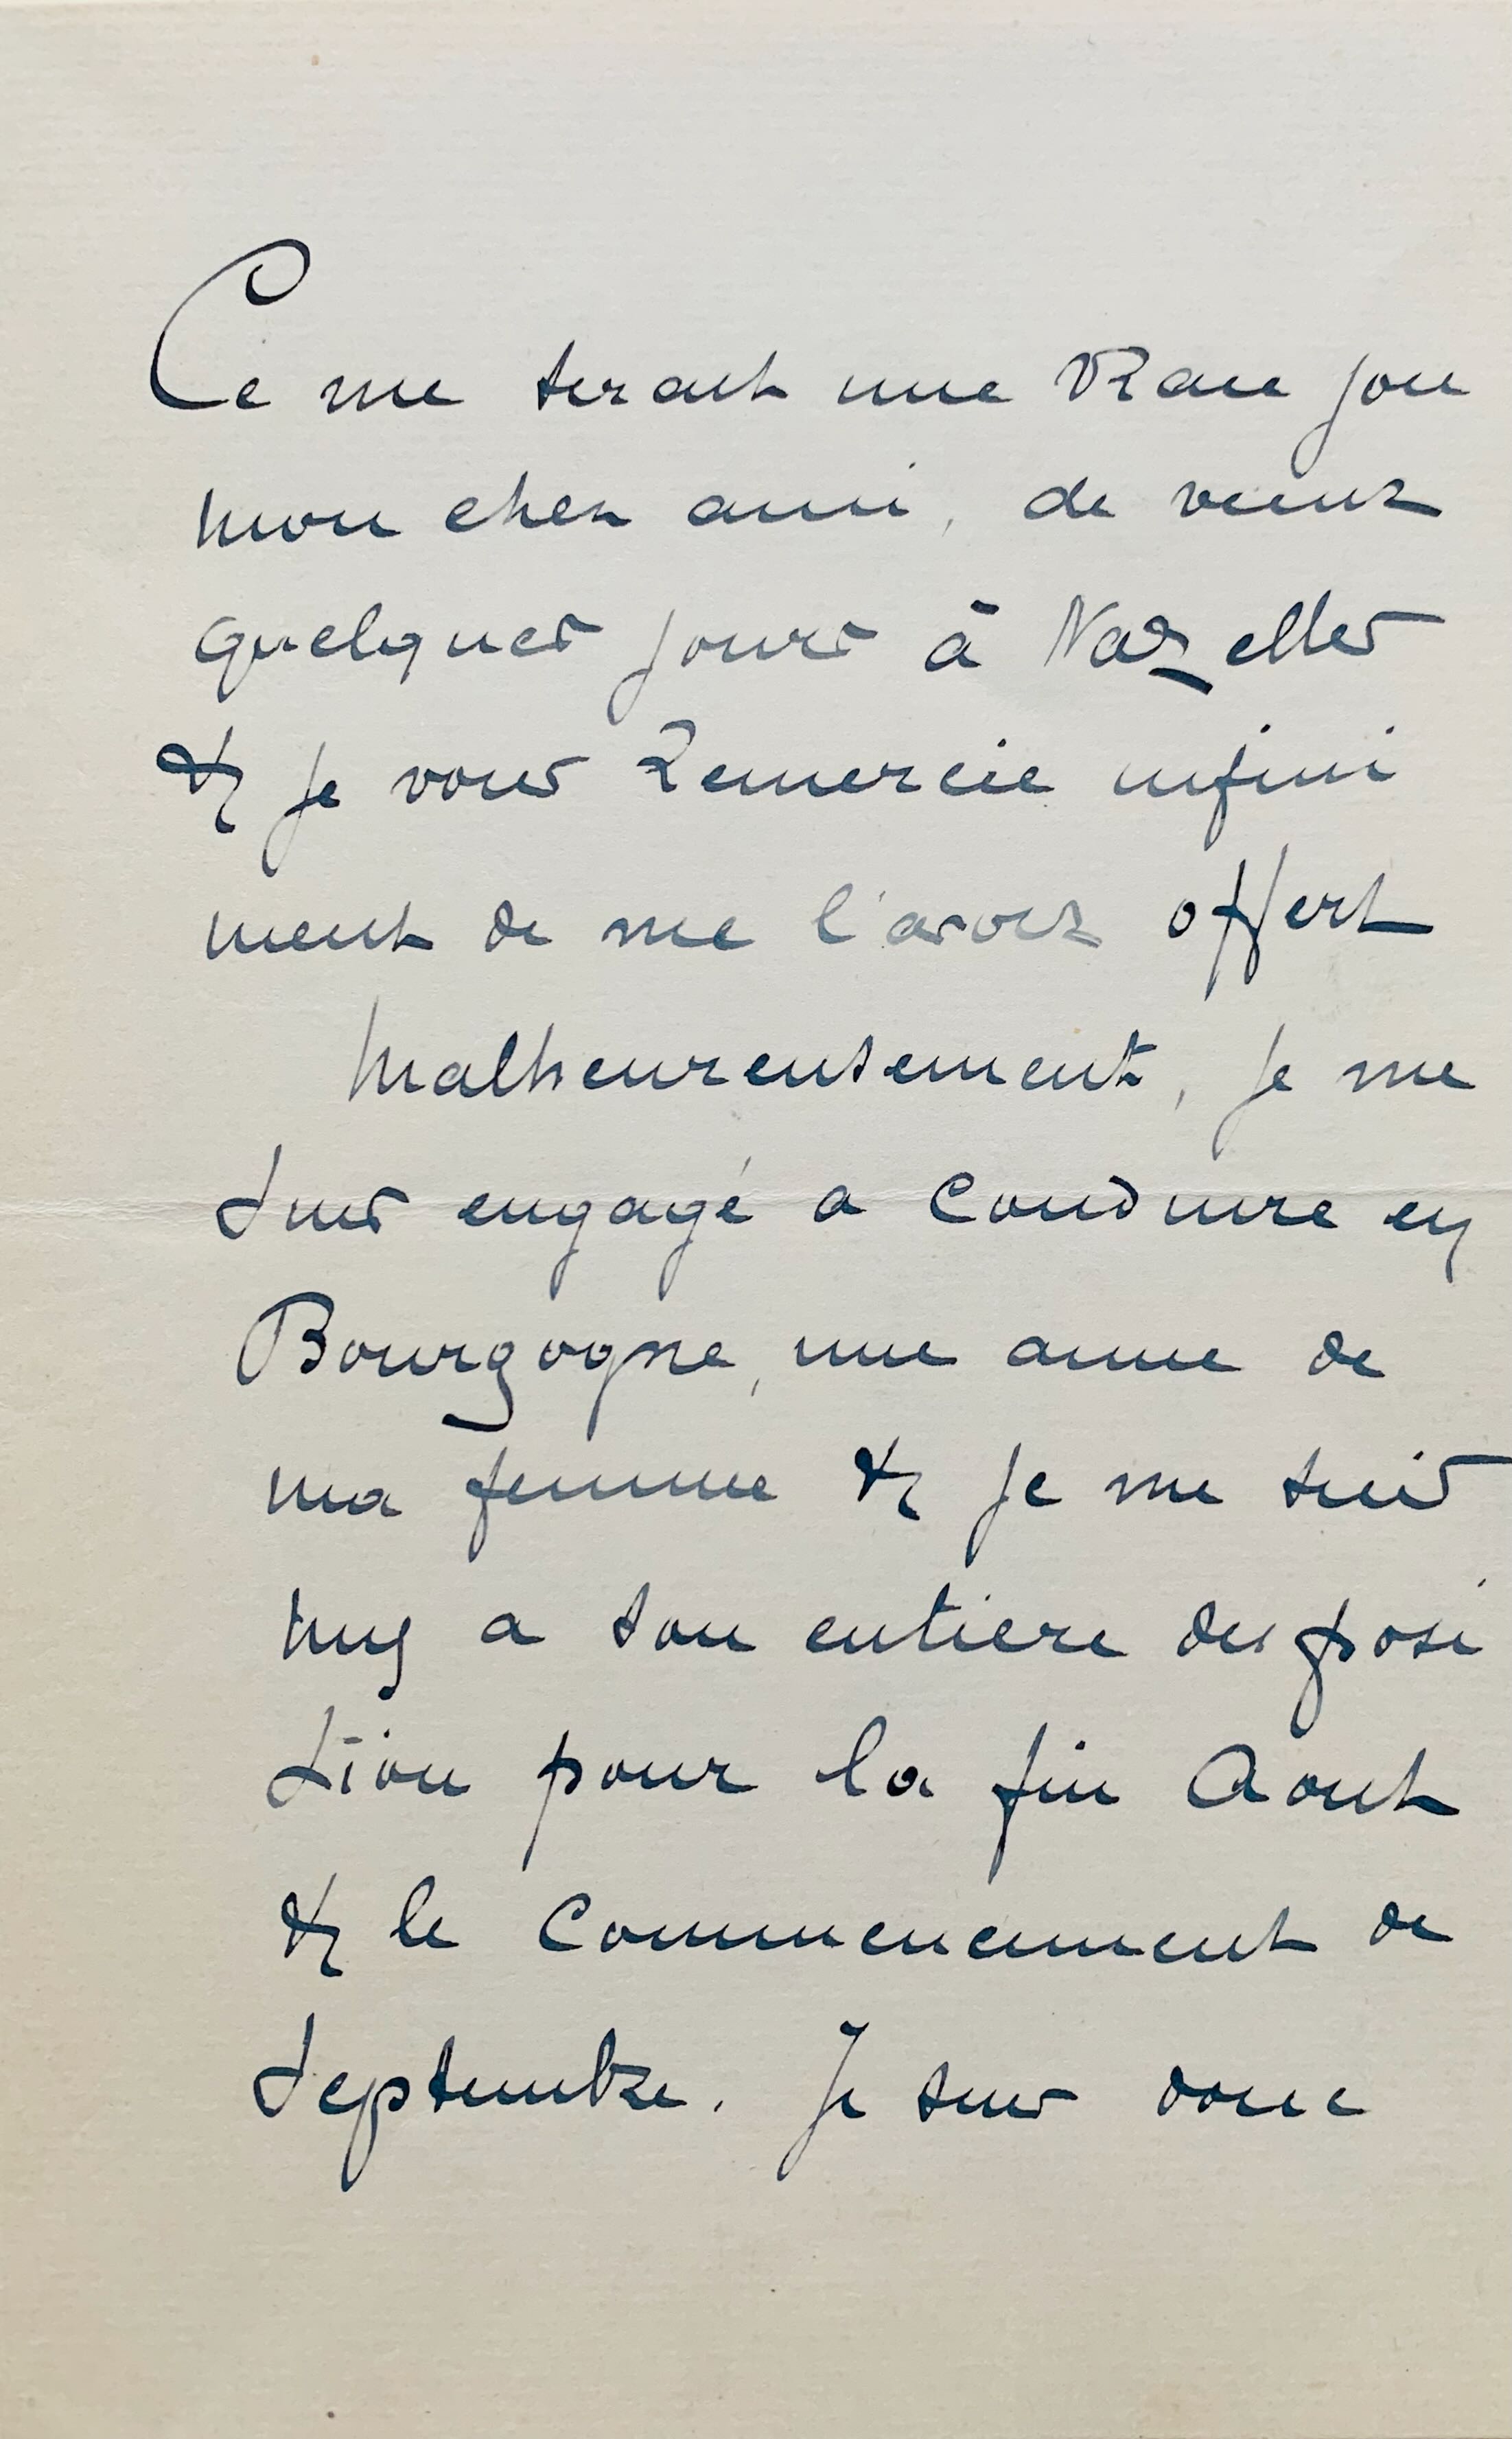 Ce me serait une vraie joie
mon cher ami, de venir
quelques jours à Nazelles
& je vous remercie infini
ment de me l'avoir offert
Malheureusement, je me
suis engagé a conduire en
Bourgogne, une amie de
ma femme & je me suis
mis a son entiere disposi
tion pour la fin Aout
& le commencement de
Septembre. Je suis donc